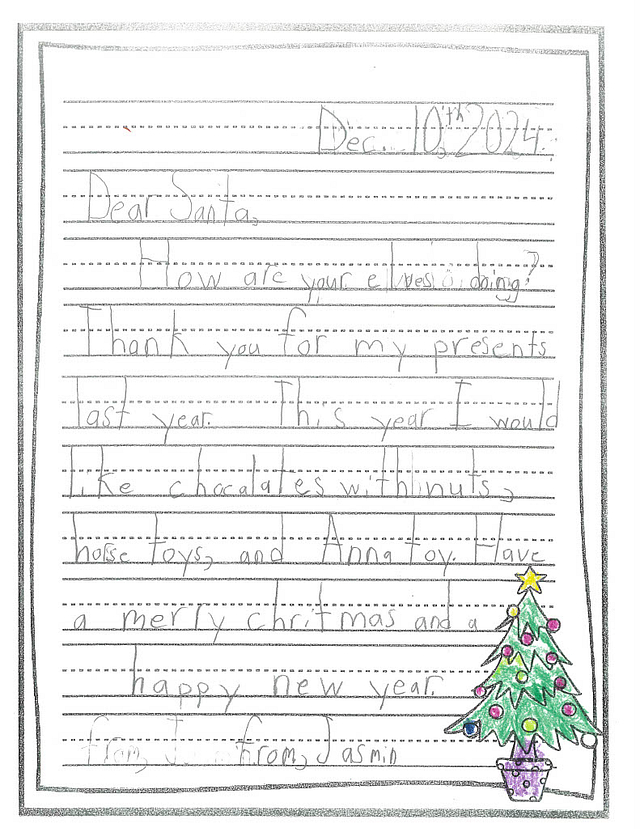 Dec. 10th, 2024.
Dear Santa,
How are your elves doing?
Thank you for my presents
last year. This year I would
like chocalates with nuts,
horse toys, and Anna toy. Have
a merry chritmas and a
happy new year.
from, J from, Jasmin